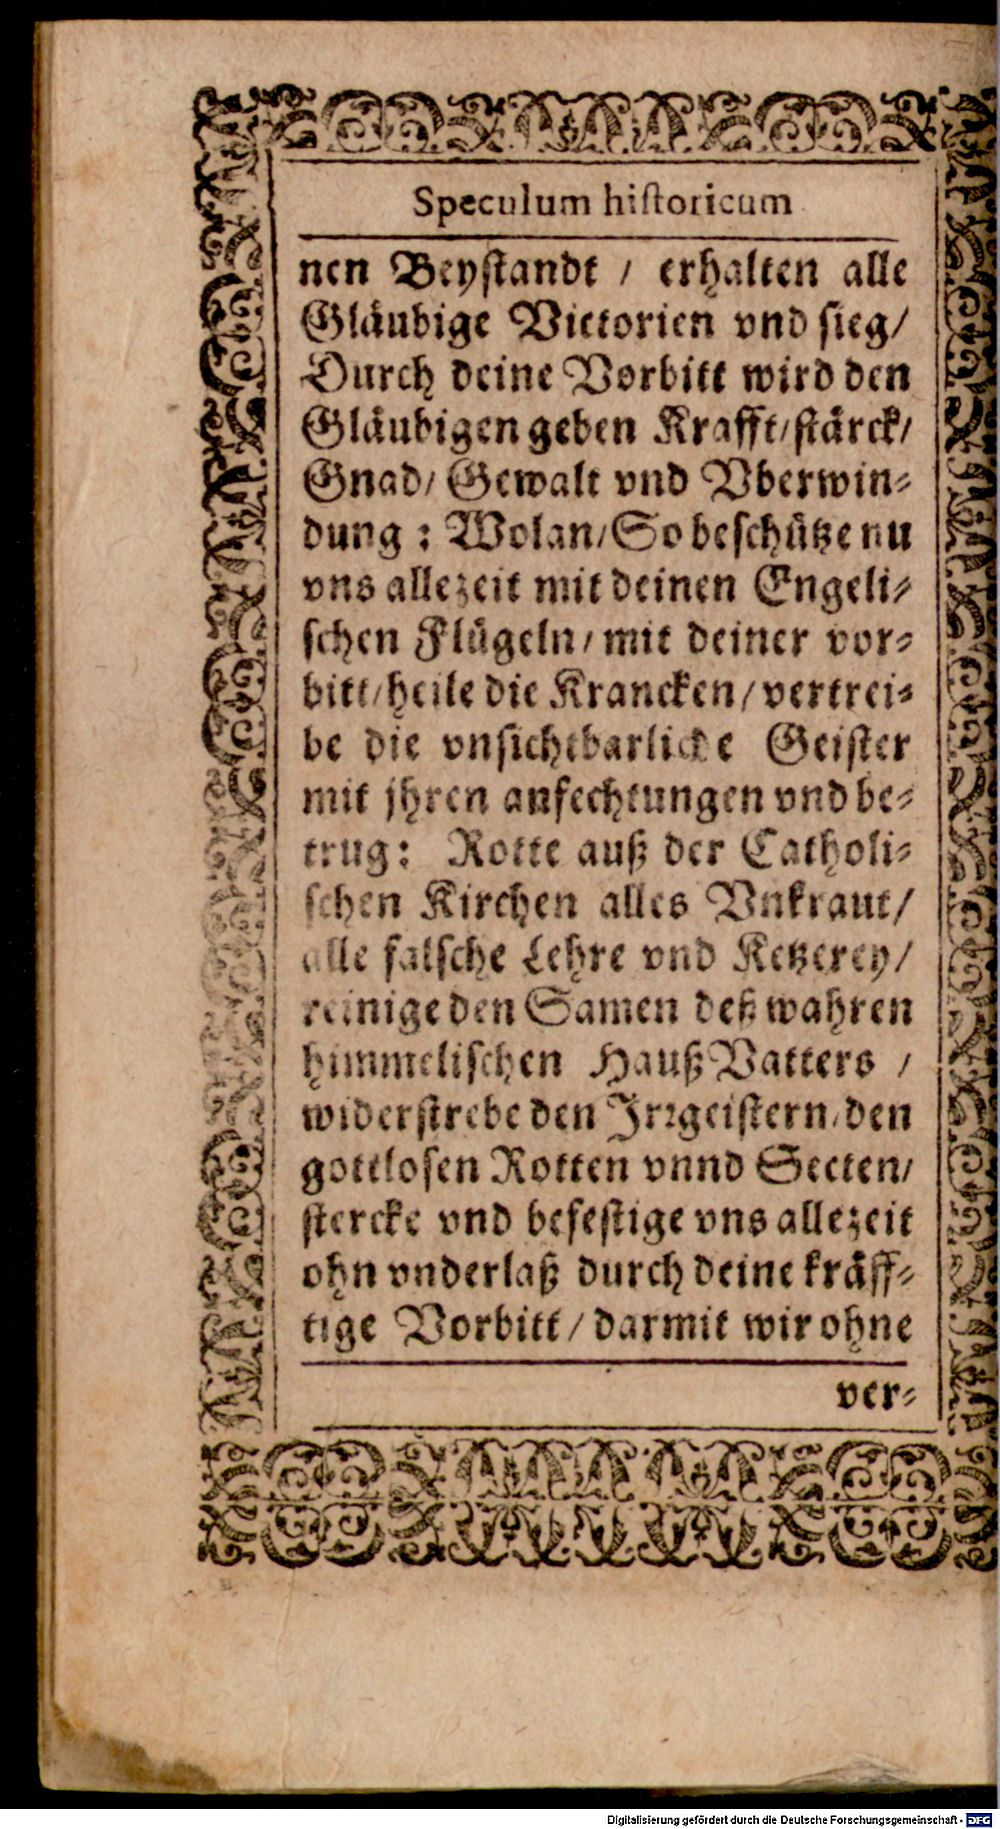 Speculum historicum
nen Beystandt / erhalten alle
Gläubige Victorien vnd sieg/
Durch deine Vorbitt wird den
Gläubigen geben Krafft/stärck/
Gnad/ Gewalt vnd Vberwin-
dung : Wolan/So beschütze nu
vns allezeit mit deinen Engeli-
schen Flügeln/ mit deiner vor-
bitt/heile die Krancken/vertrei-
be die vnsichtbarliche Geister
mit jhren anfechtungen vnd be-
trug: Rotte auß der Catholi-
schen Kirchen alles Vnkraut/
alle falsche Lehre vnd Ketzerey/
reinige den Samen deß wahren
himmelischen HaußVatters /
widerstrebe den Jrrgeistern/den
gottlosen Rotten vnnd Secten/
stercke vnd befestige vns allezeit
ohn vnderlaß durch deine kräff-
tige Vorbitt/ darmit wir ohne
ver-
Digitalisierung gefördert durch die Deutsche Forschungsgemeinschaft - DFG